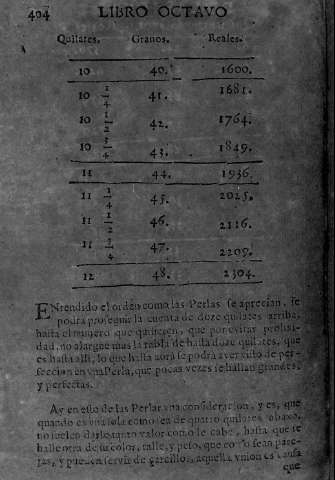 404 LIBRO OCTAVO
Quilates. Granos. Reales.
10 40. 1600.
10 1/4 41. 1681.
10 1/2 42. 1764.
10 3/4 43. 1849.
11 44. 1936.
11 1/4 45. 2025.
11 1/2 46. 2116.
11 3/4 47. 2209.
12 48. 2304.
ENtendido el orden como las Perlas se aprecian, se
podrà proseguir la cuenta de doze quilates arriba,
hasta el numero que quisieren, que por evitar prolixi-
dad, no alargue mas la tabla de hasta doze quilates, que
es hasta alli, lo que hasta aora se podrà aver visto de per-
feccion en vna Perla, que pocas vezes se hallan grandes,
y perfectas.
Ay en esto de las Perlas vna consideracion, y es, que
quando es vna sola como sea de quatro quilates abaxo,
no suelen darlo tanto valor como le cabe, hasta que se
halle otra de su color, talle, y peso, que como sean pare-
jas, y puedan servir de çarcillos, aquella vnion es causa
que